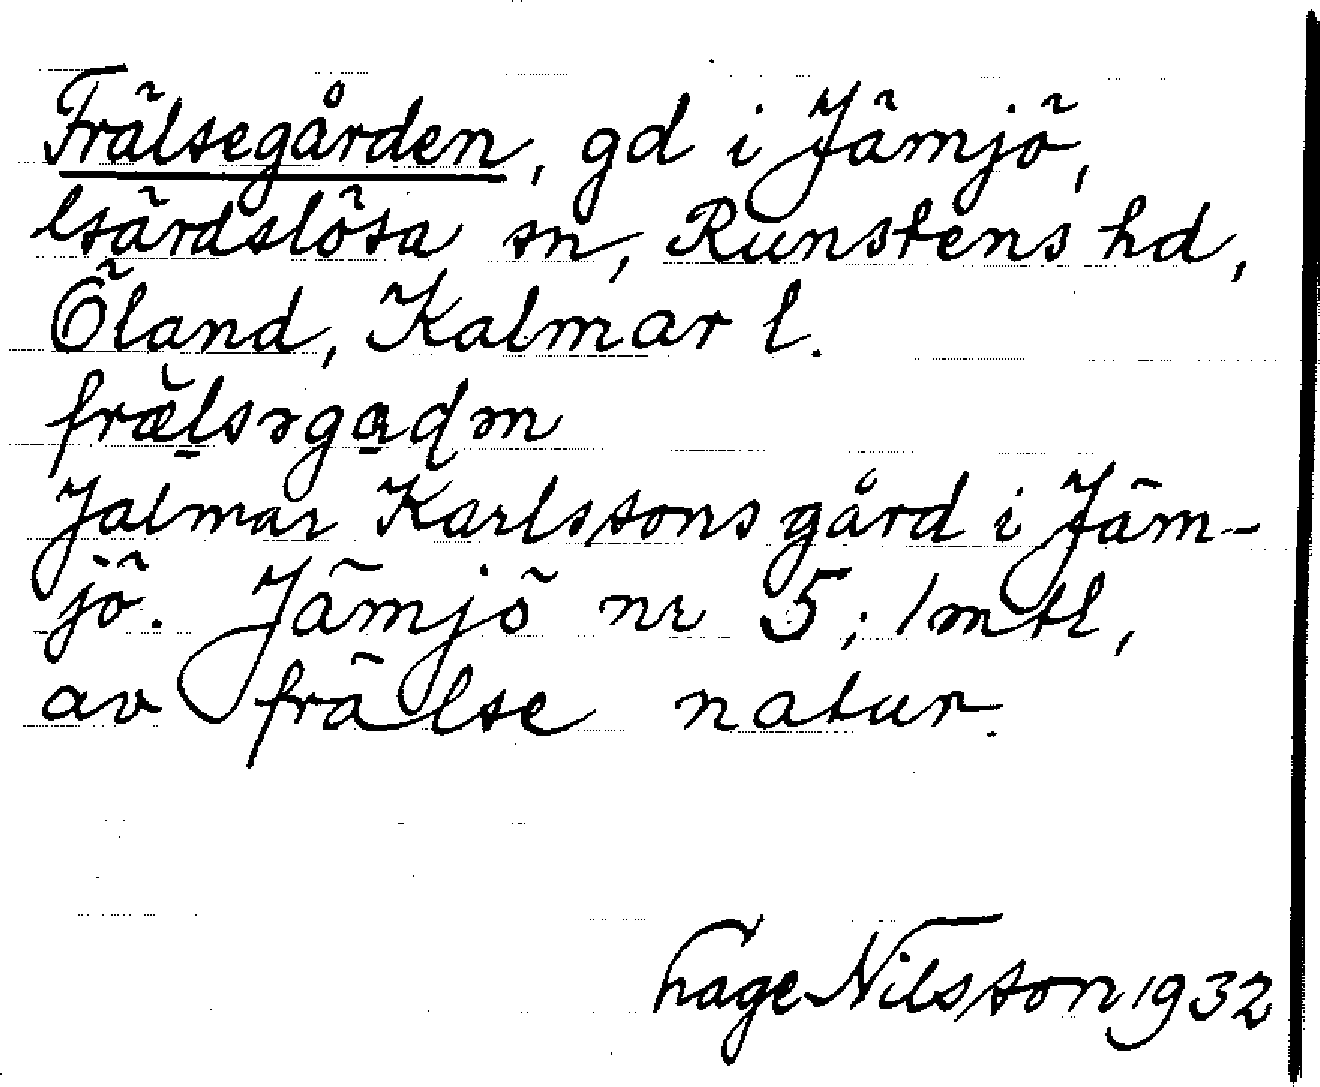 Frälsegården, gd i Jämjö,
Gärdslösa sn, Runstens hd,
Öland, Kalmar l.
Jalmar Karlssons gård i Jäm-
jö. Jämjö nr 5; 1 mtl,
av frälse natur.
Hage Nilsson 1932